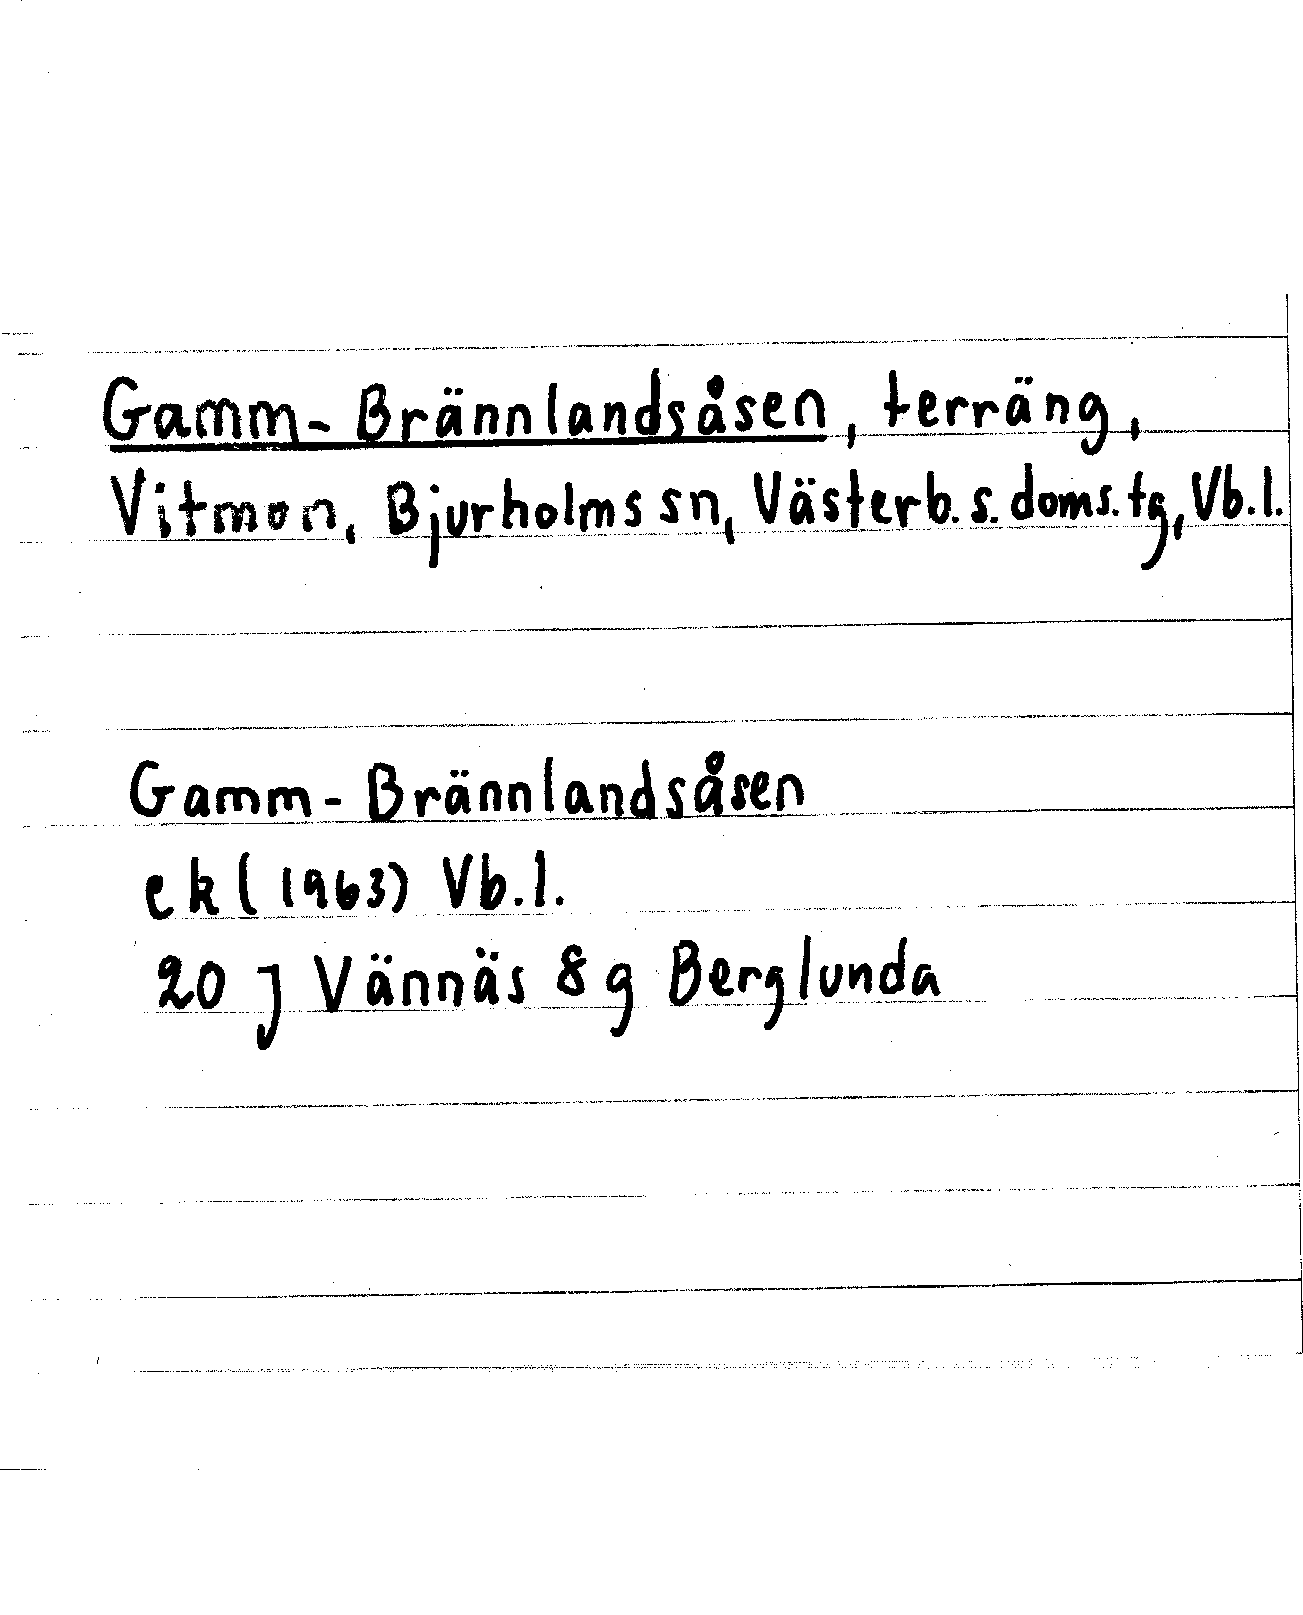 Gamm-Brännlandsåsen, terräng,
Vitmon, Bjurholms sn, Västerb. s. doms. tg, Vb. l.
Gamm-Brännlandsåsen
ek (1963) Vb. l.
20 J Vännäs 8 g Berglunda